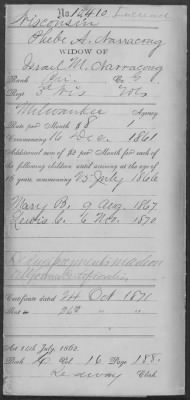 No 12410 Increase
Wisconsin
Phebe A. Narracong
WIDOW OF
Israel M. Narracong
Rank Pri. Co. G
Regt 3d Wis Vols
Milwaukee Agency
Rate per Month $ 8
Commencing 16 Dec. 1861
Additional sum of $2 per Month for each of
the following children until arriving at the age of
16 years, commencing 25 July 1866
Mary B. 9 Aug 1867
Lewis C. 6 Nov. 1870
Certificate dated 24 Oct 1871
Sent 26th " "
Act 14th July, 1862.
Book Vol 16 Page 188.
Clerk